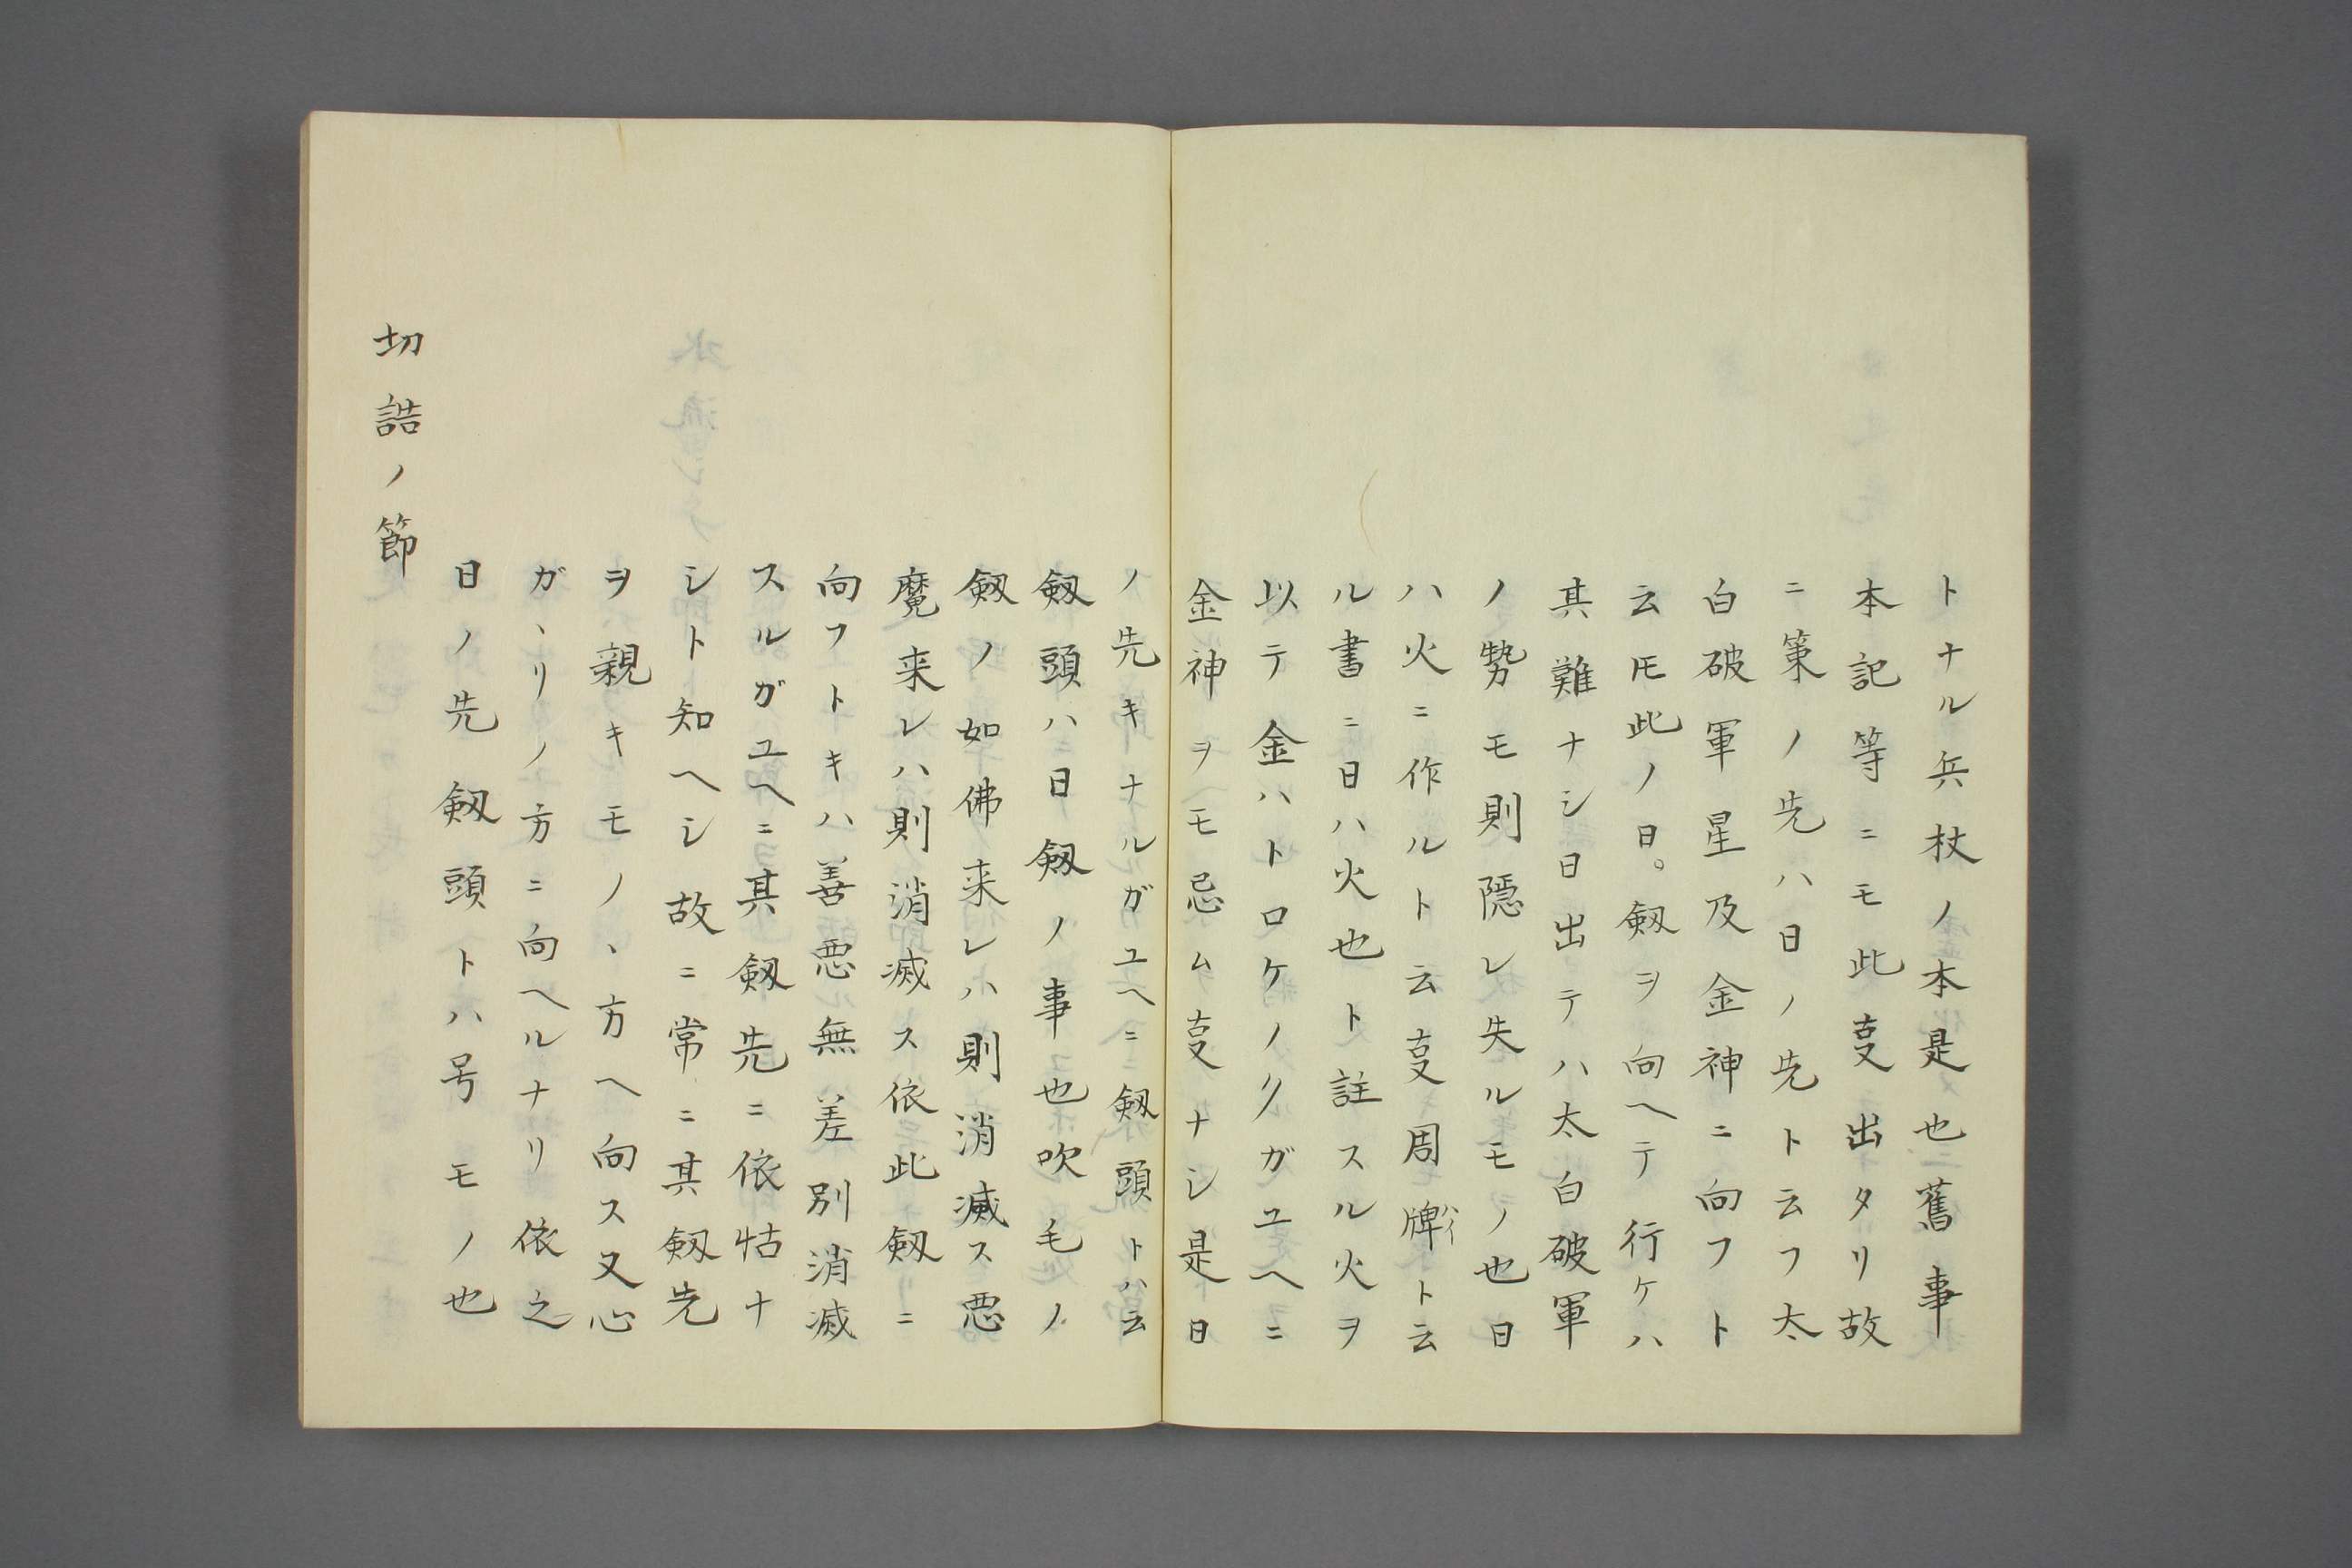 トナル兵杖ノ本是也二舊事
本記等ニモ此叓出タリ故
ニ第ノ先ハ日ノ先ト云フ太
白破軍星及金神ニ向フト
云𪜈此ノ日。劔ヲ向ヘテ行ケハ
其難ナシ日出テハ太白破軍
ノ勢モ則隱レ失ルモノ也日
ハ火ニ作ルト云叓周牌ト云
ハイ
ル書ニ日ハ火也ト註スル火ヲ
以テ金ハトロケノクガユヘニ
金神ヲモ忌ム叓ナシ是日
ノ先キナルガユヘニ劔頭トハ云
劔頭ハ日劔ノ事也吹毛ノ
劔ノ如佛来レハ則消滅ス悪
魔来レハ則消滅ス依此劔ニ
向フトキハ善悪無差別消滅
スルガユヘニ其劔先ニ依怙ナ
シト知ヘシ故ニ常ニ其劔先
ヲ親キモノヽ方ヘ向ス又心
ガヽリノ方ニ向ヘルナリ依之
日ノ先劔頭トハ号モノ也
切誥ノ節